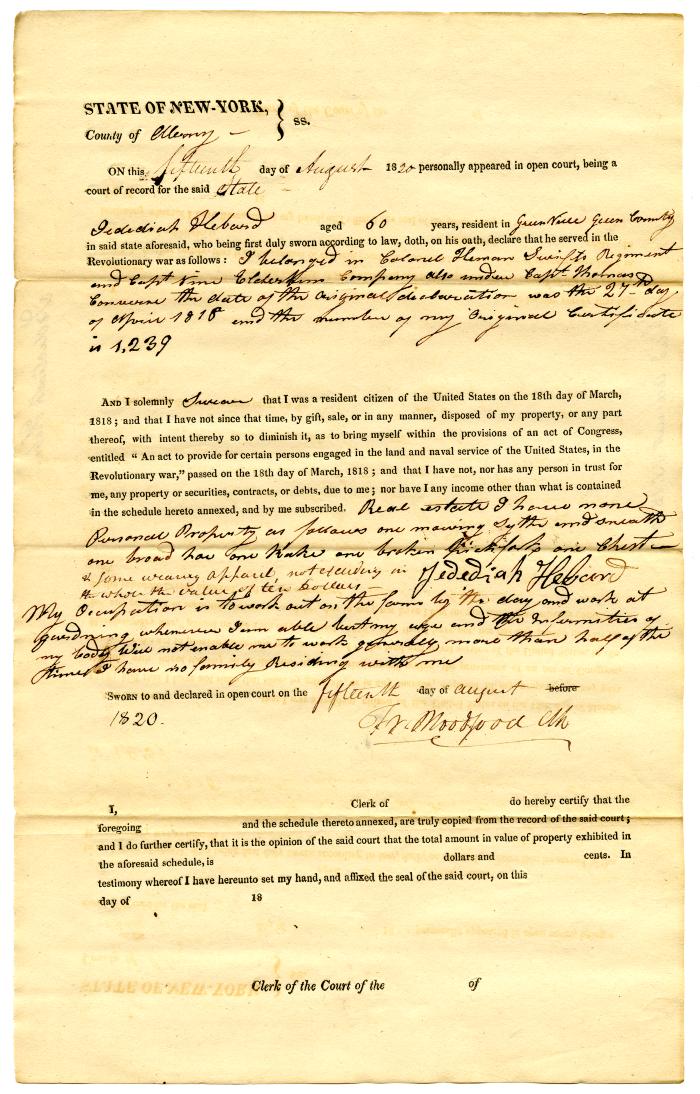 STATE OF NEW-YORK, } ss.
County of Albany
ON this fifteenth day of August 1820 personally appeared in open court, being a
court of record for the said State
Jedediah Hebard aged 60 years, resident in Green Ville Green County
in said state aforesaid, who being first duly sworn according to law, doth, on his oath, declare that he served in the
Revolutionary war as follows : I belonged in Colonel Heman Swifts Regiment
and Capt Vine Elderkins Company also under Capt Thomas
Converse the date of the Original declaration was the 27th day
of April 1818 and the number of my Original Certificate
is 1,239
AND I solemnly Swear that I was a resident citizen of the United States on the 18th day of March,
1818 ; and that I have not since that time, by gift, sale, or in any manner, disposed of my property, or any part
thereof, with intent thereby so to diminish it, as to bring myself within the provisions of an act of Congress,
entitled “ An act to provide for certain persons engaged in the land and naval service of the United States, in the
Revolutionary war,” passed on the 18th day of March, 1818 ; and that I have not, nor has any person in trust for
me, any property or securities, contracts, or debts, due to me ; nor have I any income other than what is contained
in the schedule hereto annexed, and by me subscribed. Real estate I have none
Personal Property as follows one mowing Sythe and sneath
one broad hoe one Rake one broken Pitchfork one Chest
& some wearing apparel not exceeding in
the whole the value of ten Dollars
Jedediah Hebard
My Occupation is to work out on the farm by the day and work at
Gardning whenever I am able but my age and the Infermities of
my body will not enable me to work generaly more than half of the
time I have no family Residing with me
SWORN to and declared in open court on the fifteenth day of august before
1820.
Clk
I, Clerk of do hereby certify that the
foregoing and the schedule thereto annexed, are truly copied from the record of the said court ;
and I do further certify, that it is the opinion of the said court that the total amount in value of property exhibited in
the aforesaid schedule, is dollars and cents. In
testimony whereof I have hereunto set my hand, and affixed the seal of the said court, on this
day of 18
Clerk of the Court of the of